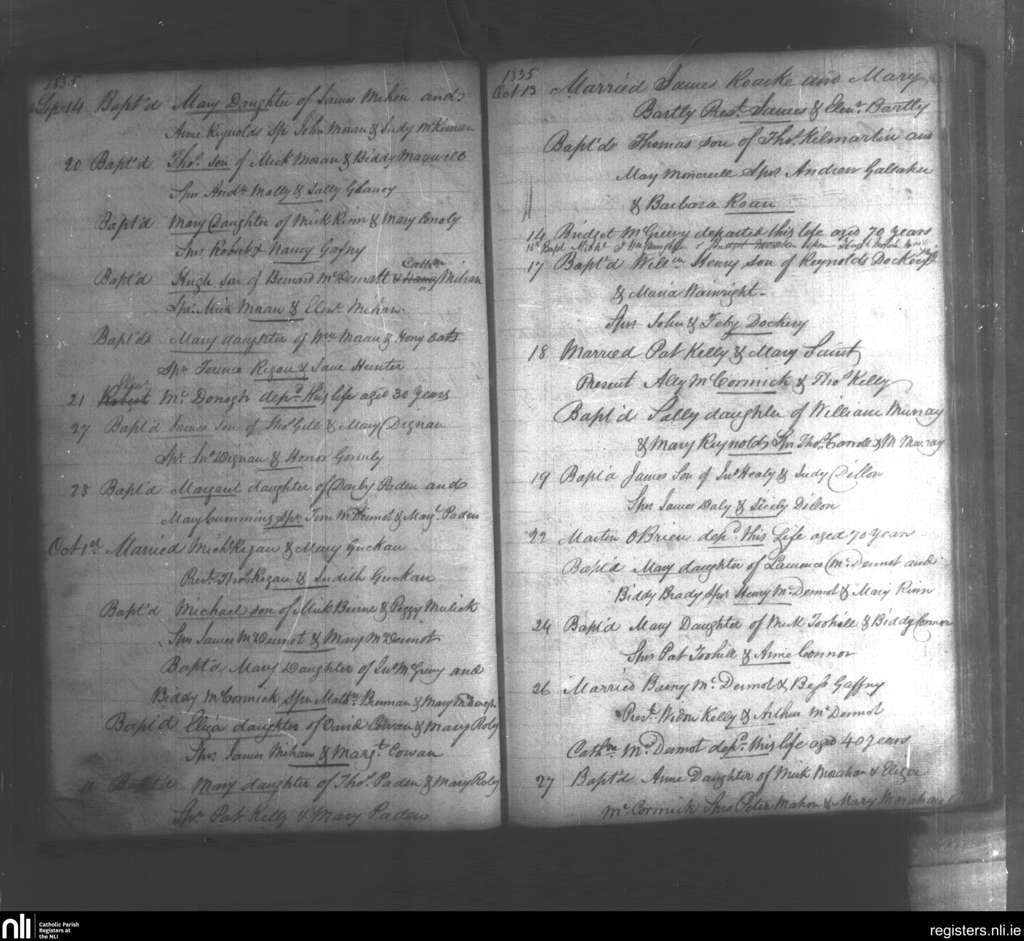 1835
Sep 14 Bapt'd Mary Daughter of James Mihen and
Anne Reynolds Sps John Moran & Judy McKiernan
20 Bapt'd Thos. son of Mick Moran & Biddy Maxwell
Sprs Andw Molly & Sally Glancy
Bapt'd Mary Daughter of Mick Rinn & Mary
Sprs Robert & Nancy Gafny
Bapt'd Hugh son of Bernard McDermott & Cathne Mihan
Spr. Mick Moran & Elenr. Mihan
Bapt'd Mary daughter of Wm Moran & Hony Oats
Spr Terence Regan & Jane Hunter
21 Mc Donogh depd. this life aged 30 years
27 Bapt'd James Son of Thos Gill & Mary Dignan
Spr. Jno Dignan & Honor Gormly
28 Bapt'd Margaret daughter of Darby Paden and
Mary Cummins Sprs Tim McDermot & Mary. Paden
Oct 1st Married Michl Regan & Mary Guckan
Prst. Thos Regan & Judith Guckan
Bapt'd Michael son of Mick Beirne & Peggy Mulick
Sprs James McDermot & Mary McDermot
Bapt'd Mary Daughter of Jno McGreevy and
Biddy McCormick Sprs Mathw Brennan & Mary
Bapt'd Eliza daughter of David Cowan & Mary Roly
Sprs. James Mihan & Margt. Cowan
11 Bapt'd Mary daughter of Thos. Paden & Mary Roly
Spr. Pat Kelly & Mary Paden
1835
Oct 13 Married James Roarke and Mary
Bartly Prest. James & Elenr. Bartly
Bapt'd Thomas son of Thos. Kilmartin and
May Sprs. Andrew Gallaher
& Barbara Roan
14 Bridget McGreevy departed this life aged 70 years
17 Bapt'd Willm Henry son of Reynolds Dockery
& Maria Wainright
Sprs John & Feby Dockery
18 Married Pat Kelly & Mary Saint
Present Ally McCormick & Thos Kelly
Bapt'd Sally daughter of William Murray
& Mary Reynolds Spr Thos. & M Murray
19 Bapt'd James Son of Jno Healy & Judy Dillon
Sprs James Daly & Sicily Dillon
22 Martin O'Brien depd. this Life aged 70 years
Bapt'd Mary daughter of Laurence McDermot and
Biddy Brady Sprs Henry McDermot & Mary Rinn
24 Bapt'd Mary Daughter of Mick Toohill & Biddy Connor
Sprs Pat Toohill & Anne Connor
26 Married Barny Mc Dermot & Bess Gaffny
Prest. Widow Kelly & Arthur McDermot
Cathne McDermot depd. this life aged 40 years
27 Bapt'd Anne Daughter of Mick Monahan & Eliza
McCormick Sprs Peter Mahon & Mary Monahan
nli
Catholic Parish
Registers at
the NLI
registers.nli.ie